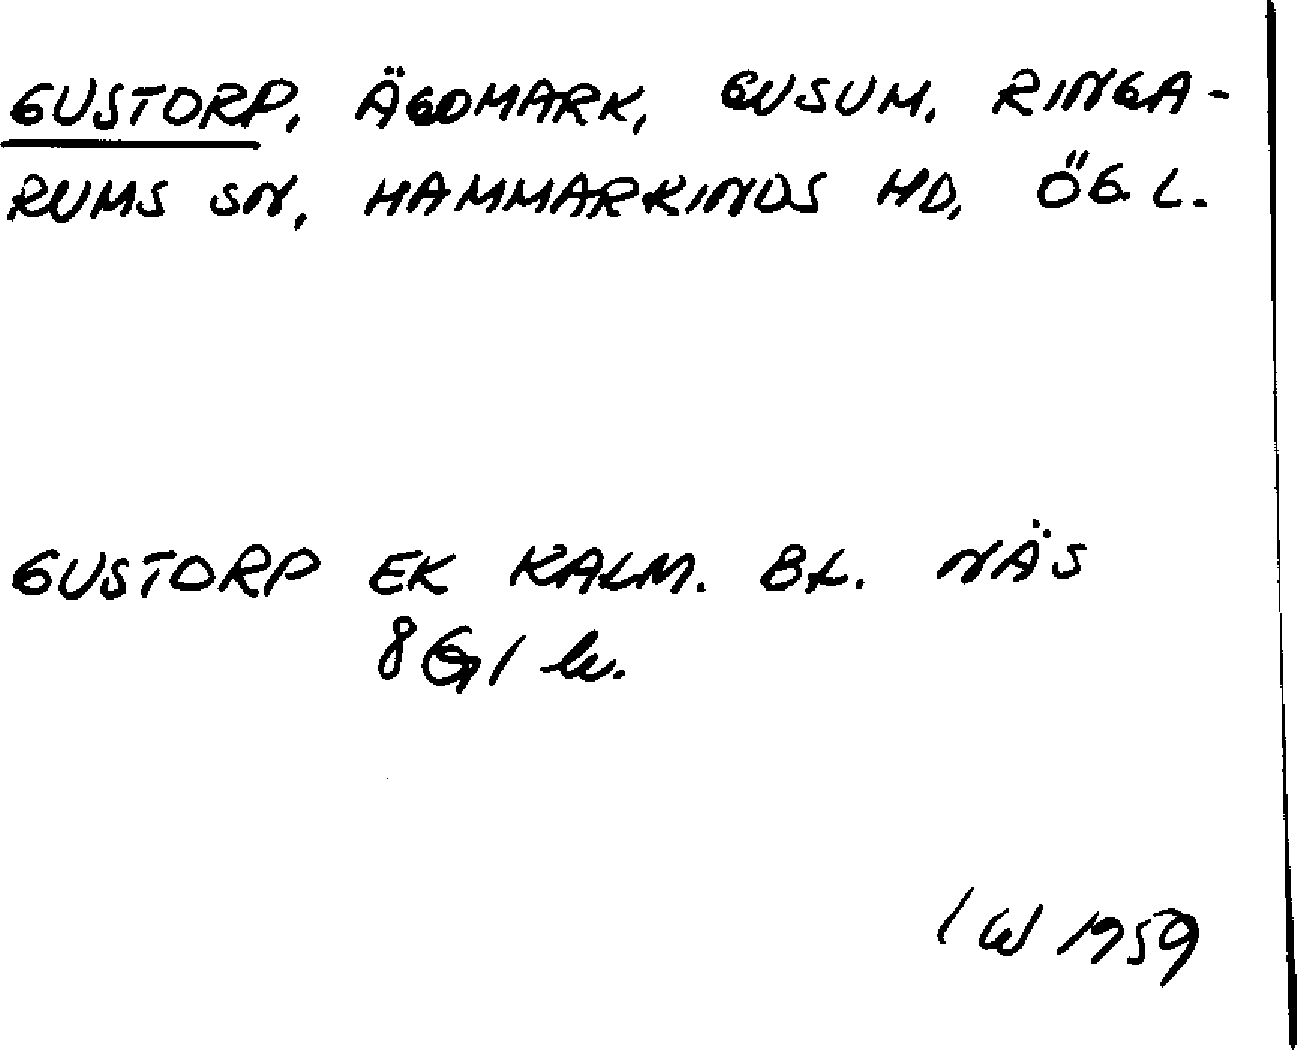 GUSTORP, ÄGOMARK, GUSUM, RINGA-
RUMS SN, HAMMARKINDS HD, ÖG. L.
GUSTORP EK KALM. BL. NÄS
8 G 1 k.
IW 1959